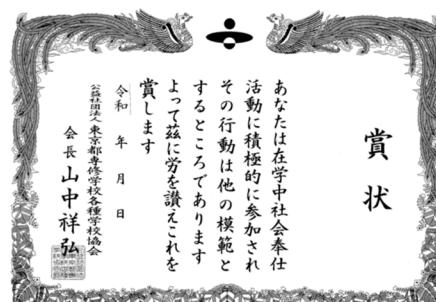 賞状
あなたは在学中社会奉仕
活動に積極的に参加され
その行動は他の模範と
するところであります
よって茲に労を讃えこれを
賞します
令和 年 月 日
公益社団法人 東京都専修学校各種学校協会
会長 山中祥弘